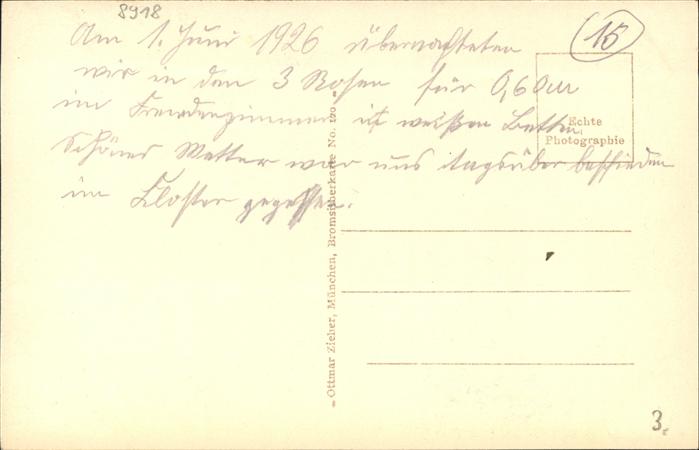 8918
15
Am 1. Juni 1926 übernachteten
wir in den 3 Rosen für 0,60 M
im Fremdenzimmer mit weißen Betten.
Schönes Wetter war uns tagsüber beschieden
im Kloster gegessen.
Echte
Photographie
Ottmar Zieher, München, Bromsilberkarte No.
3.